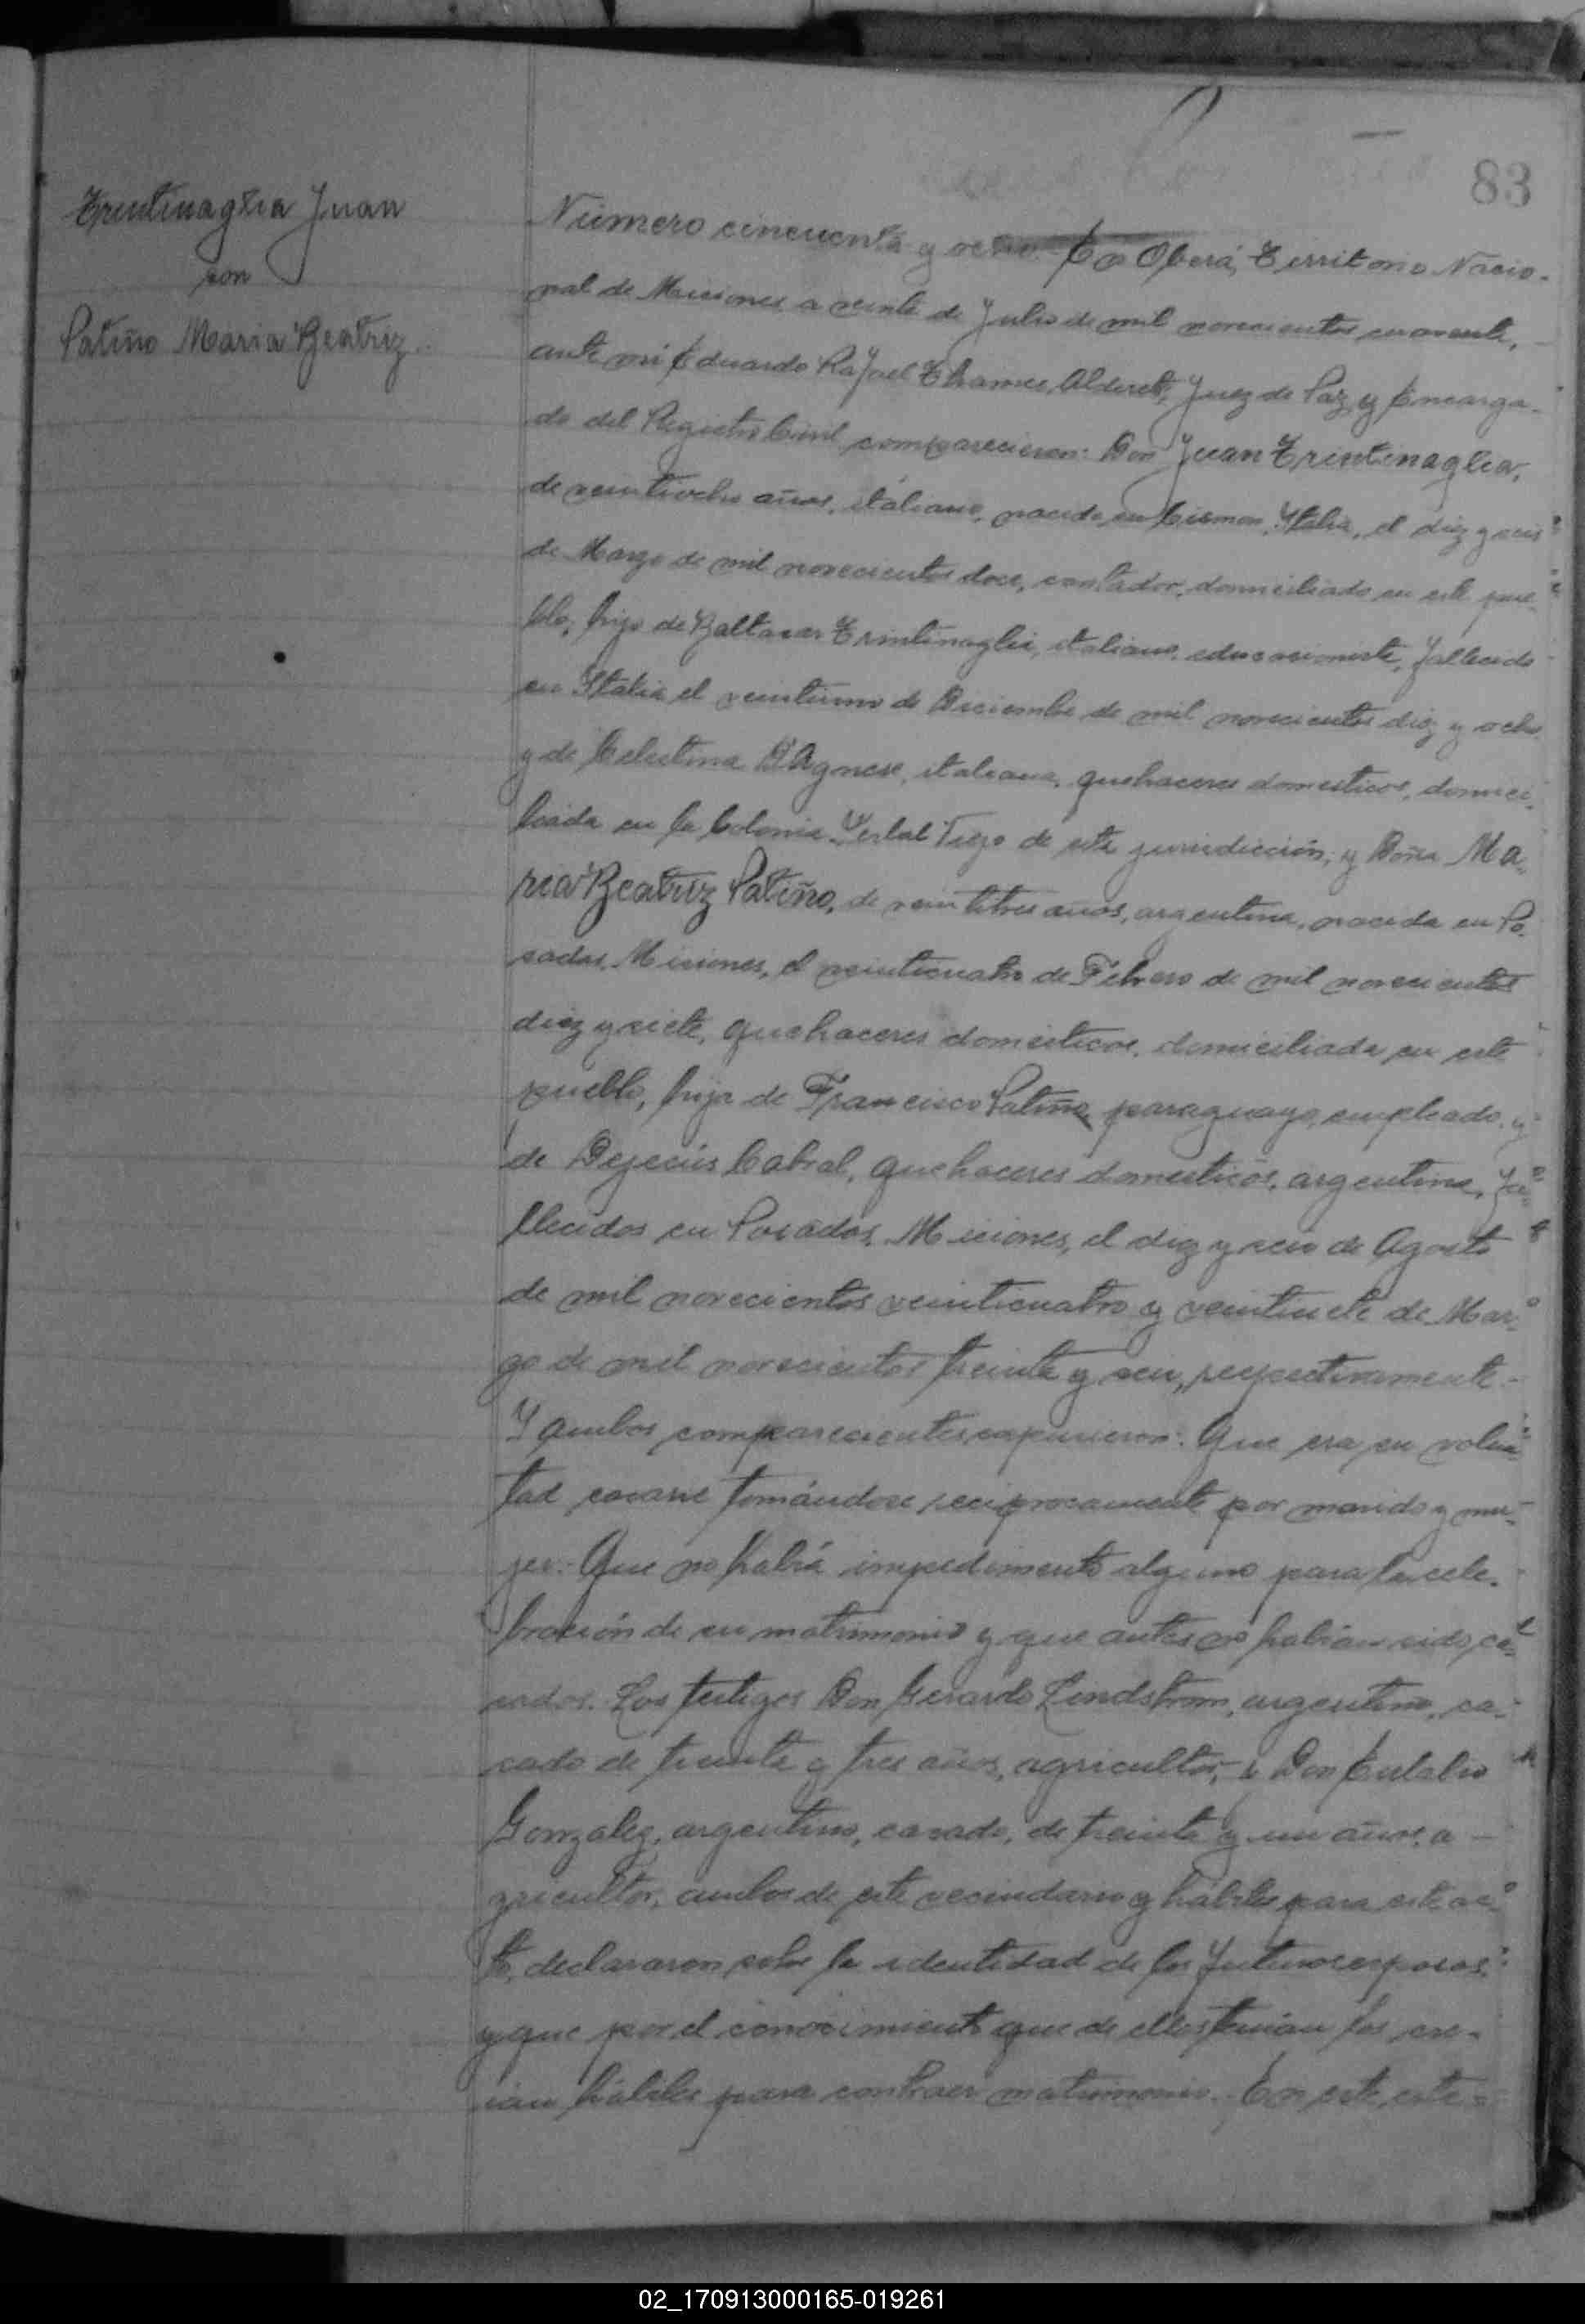 83
Trintinaglia Juan
con
Patiño Maria Beatriz
Número cincuenta y ocho. En Oberá, Territorio Nacio-
nal de Misiones, a veinte de Julio de mil novecientos cuarenta,
ante mi Eduardo Rafael Thames Alderete, Juez de Paz y Encarga-
do del Registro Civil, comparecieron: Don Juan Trintinaglia,
de veintiocho años, italiano, nacido en Cismon, Italia, el diez y seis
de Marzo de mil novecientos doce, contador, domiciliado en este pue-
blo, hijo de Baltasar Trintinaglia, italiano, educacionista, fallecido
en Italia el veintiuno de Diciembre de mil novecientos diez y ocho
y de Celestina D'Agnese, italiana, quehaceres domesticos, domici-
liada en la Colonia Yerbal Viejo de esta jurisdicción; y Doña Ma-
ria Beatriz Patiño, de veintitres años, argentina, nacida en Po-
sadas, Misiones, el veinticuatro de Febrero de mil novecientos
diez y siete, quehaceres domésticos, domiciliada en este
pueblo, hija de Francisco Patiño, paraguayo, empleado, y
de Dejesús Cabral, quehaceres domésticos, argentina, fa-
llecidos en Posadas, Misiones, el diez y seis de Agosto
de mil novecientos veinticuatro y veintisiete de Mar-
zo de mil novecientos treinta y seis, respectivamente.-
Y ambos comparecientes expusieron: Que era su volun-
tad casarse tomándose reciprocamente por marido y mu-
jer.- Que no había impedimento alguno para la cele-
bración de su matrimonio y que antes no habían sido ca-
sados. Los testigos Don Gerardo Lindstrom, argentino, ca-
sado de treinta y tres años, agricultor, y Don Eulalio
Gonzalez, argentino, casado, de treinta y un años, a-
gricultor, ambos de este vecindario y hábiles para este ac-
to, declararon sobre la identidad de los futuros esposos
y que por el conocimiento que de ellos tenian los cre-
ian hábiles para contraer matrimonio.- En este esta-
02_170913000165-019261